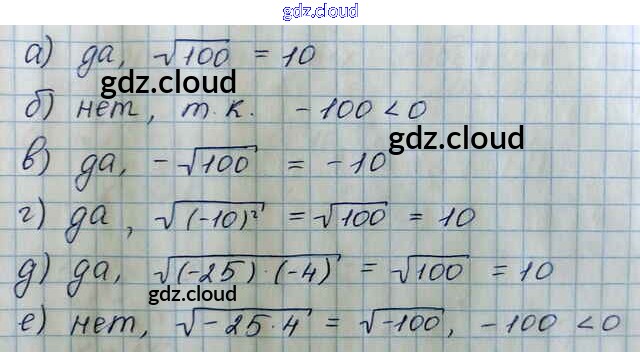 gdz.cloud
а) да, √100 = 10
gdz.cloud
б) нет, т.к. -100 < 0
gdz.cloud
в) да, -√100 = -10
г) да, √(-10)² = √100 = 10
д) да, √(-25)·(-4) = √100 = 10
gdz.cloud
е) нет, √-25·4 = √-100, -100 < 0